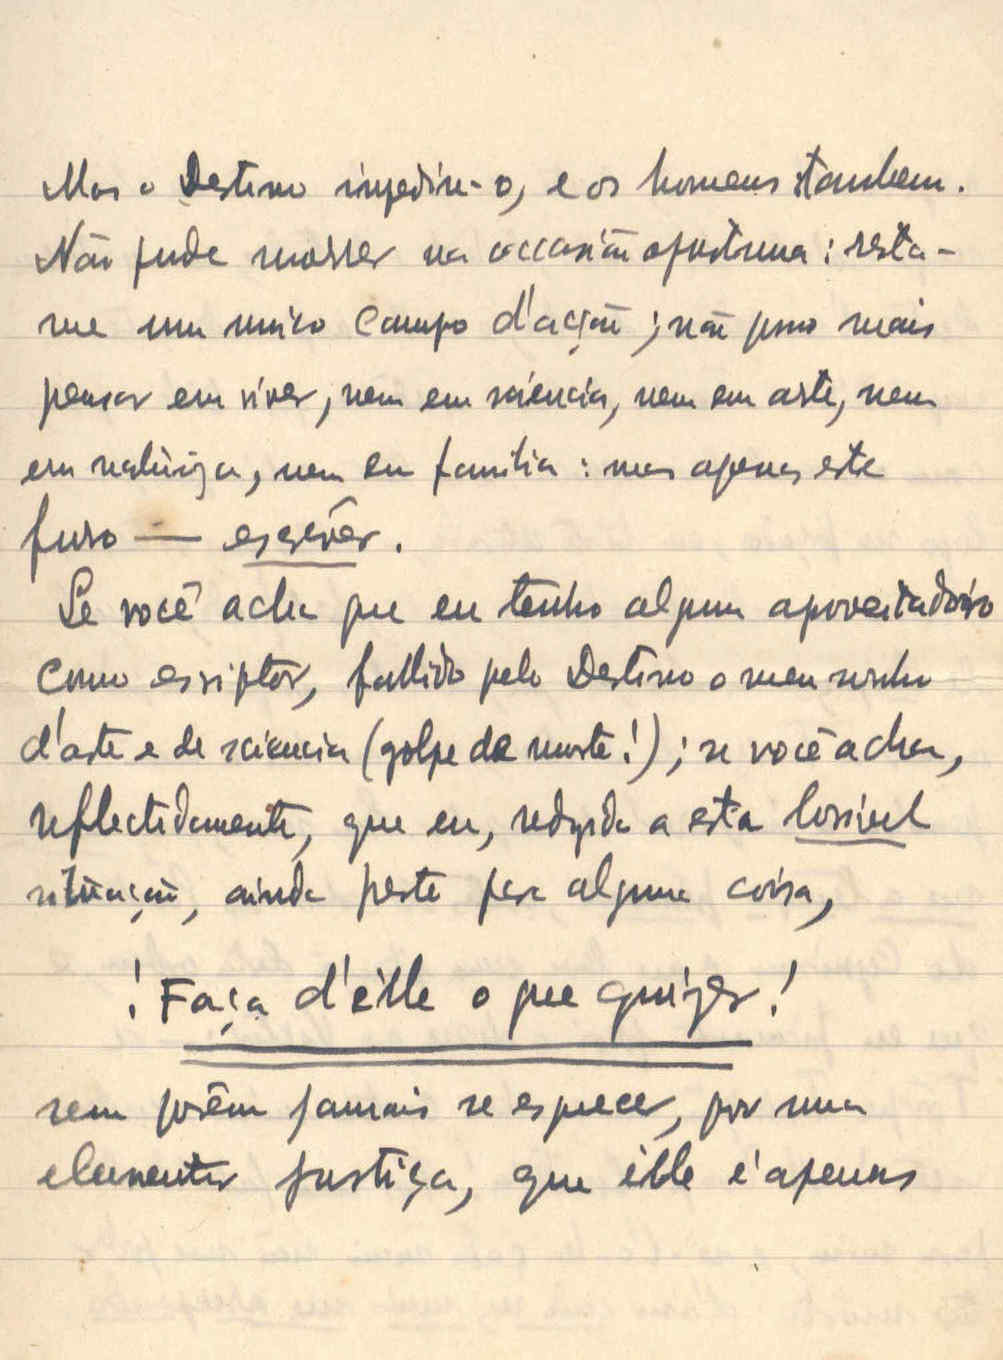 Mas o Destino impediu-o, e os homens tambem.
Não pude morrer na occasião opportuna: resta-
me um unico campo d'acção; não posso mais
pensar em viver, nem em sciencia, nem em arte, nem
em natureza, nem em familia: mas apenas este
furo — escrever.
Se você acha que eu tenho algum aproveitadoiro
como escriptôr, fallido pelo Destino o meu sonho
d'arte e de sciencia (golpe de morte!); se você acha,
reflectidamente, que eu, redusido a esta horrivel
situação, ainda preste pera alguma coisa,
! Faça d'élle o que quizer!
sem porêm jamais se esquecer, por uma
elementar justiça, que élle é apenas